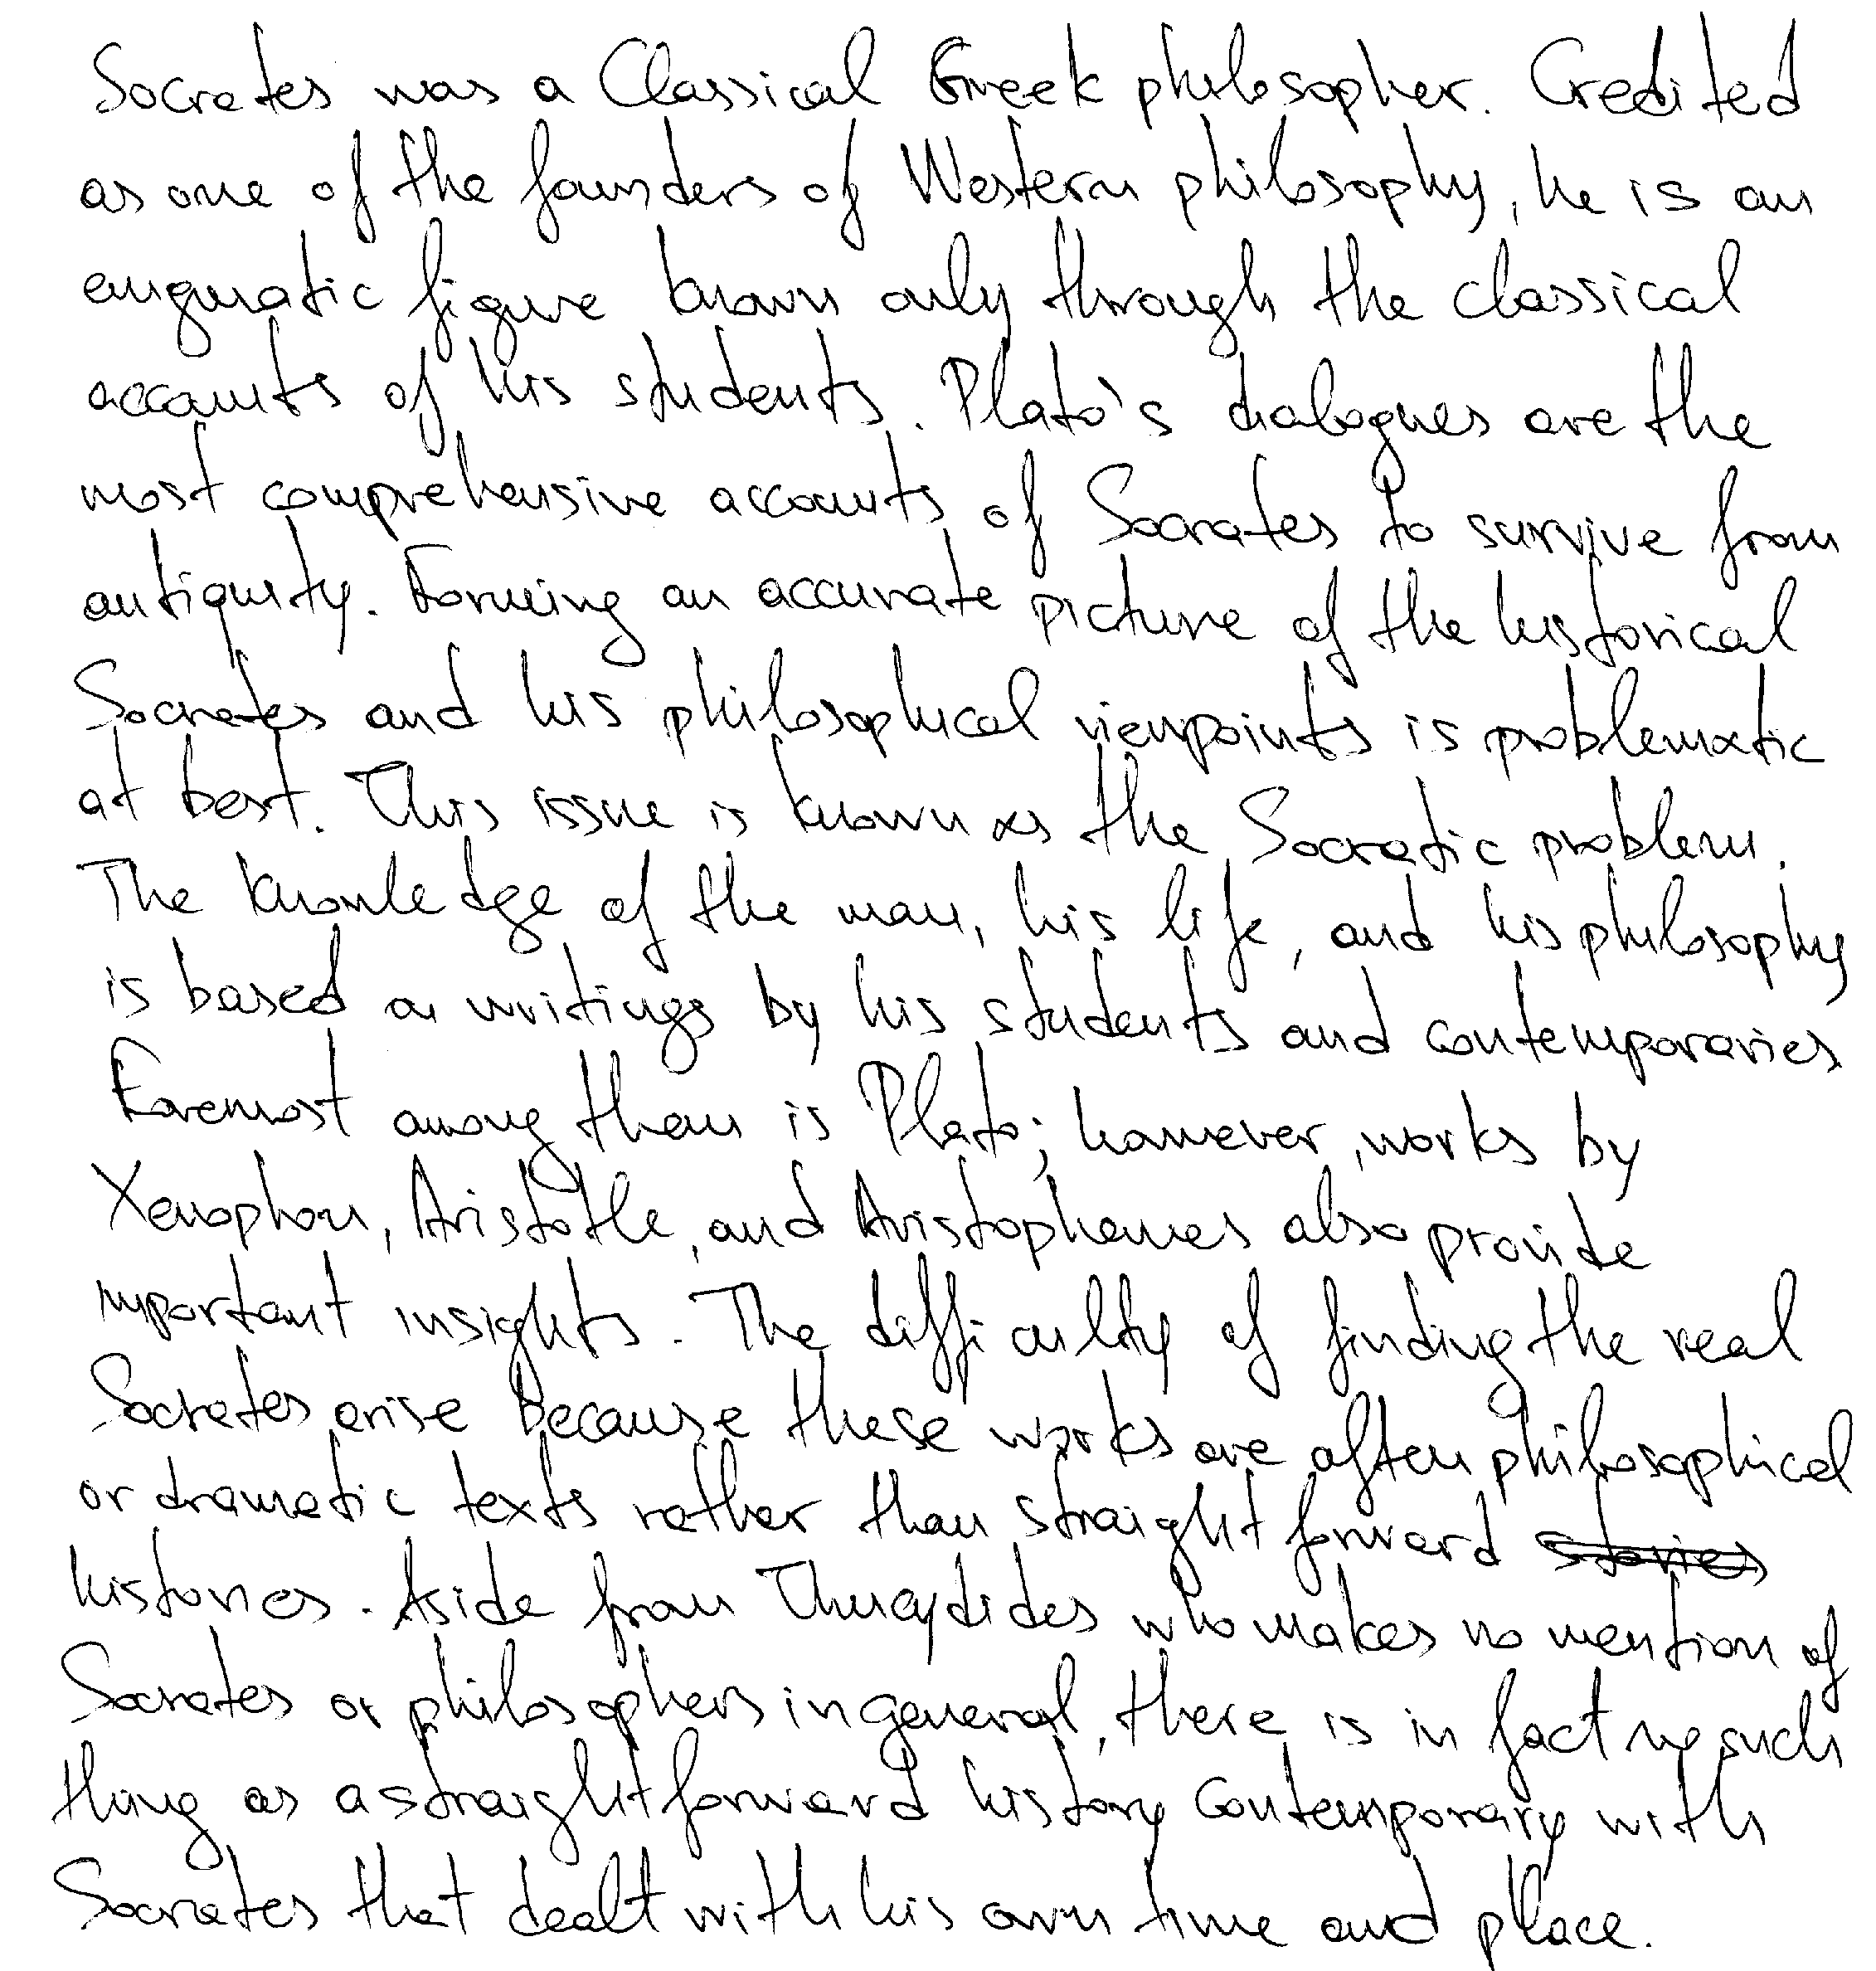 Socrates was a Classical Greek philosopher. Credited
as one of the founders of Western philosophy, he is an
enigmatic figure known only through the classical
accounts of his students. Plato's dialogues are the
most comprehensive accounts of Socrates to survive from
antiquity. Forming an accurate picture of the historical
Socrates and his philosophical viewpoints is problematic
at best. This issue is known as the Socratic problem.
The knowledge of the man, his life, and his philosophy
is based on writings by his students and contemporaries
Foremost among them is Plato; however, works by
Xenophon, Aristotle, and Aristophanes also provide
important insights. The difficulty of finding the real
Socrates arise because these works are often philosophical
or dramatic texts rather than straightforward stories
histories. Aside from Thucydides who makes no mention of
Socrates or philosophers in general, there is in fact no such
thing as a straightforward history contemporary with
Socrates that dealt with his own time and place.